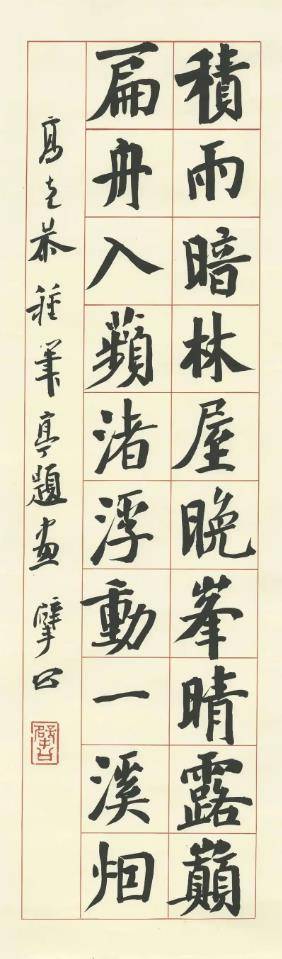 積雨暗林屋晚峯晴露巔
扁舟入蘋渚浮動一溪烟
高克恭種筆亭題畫 擘公